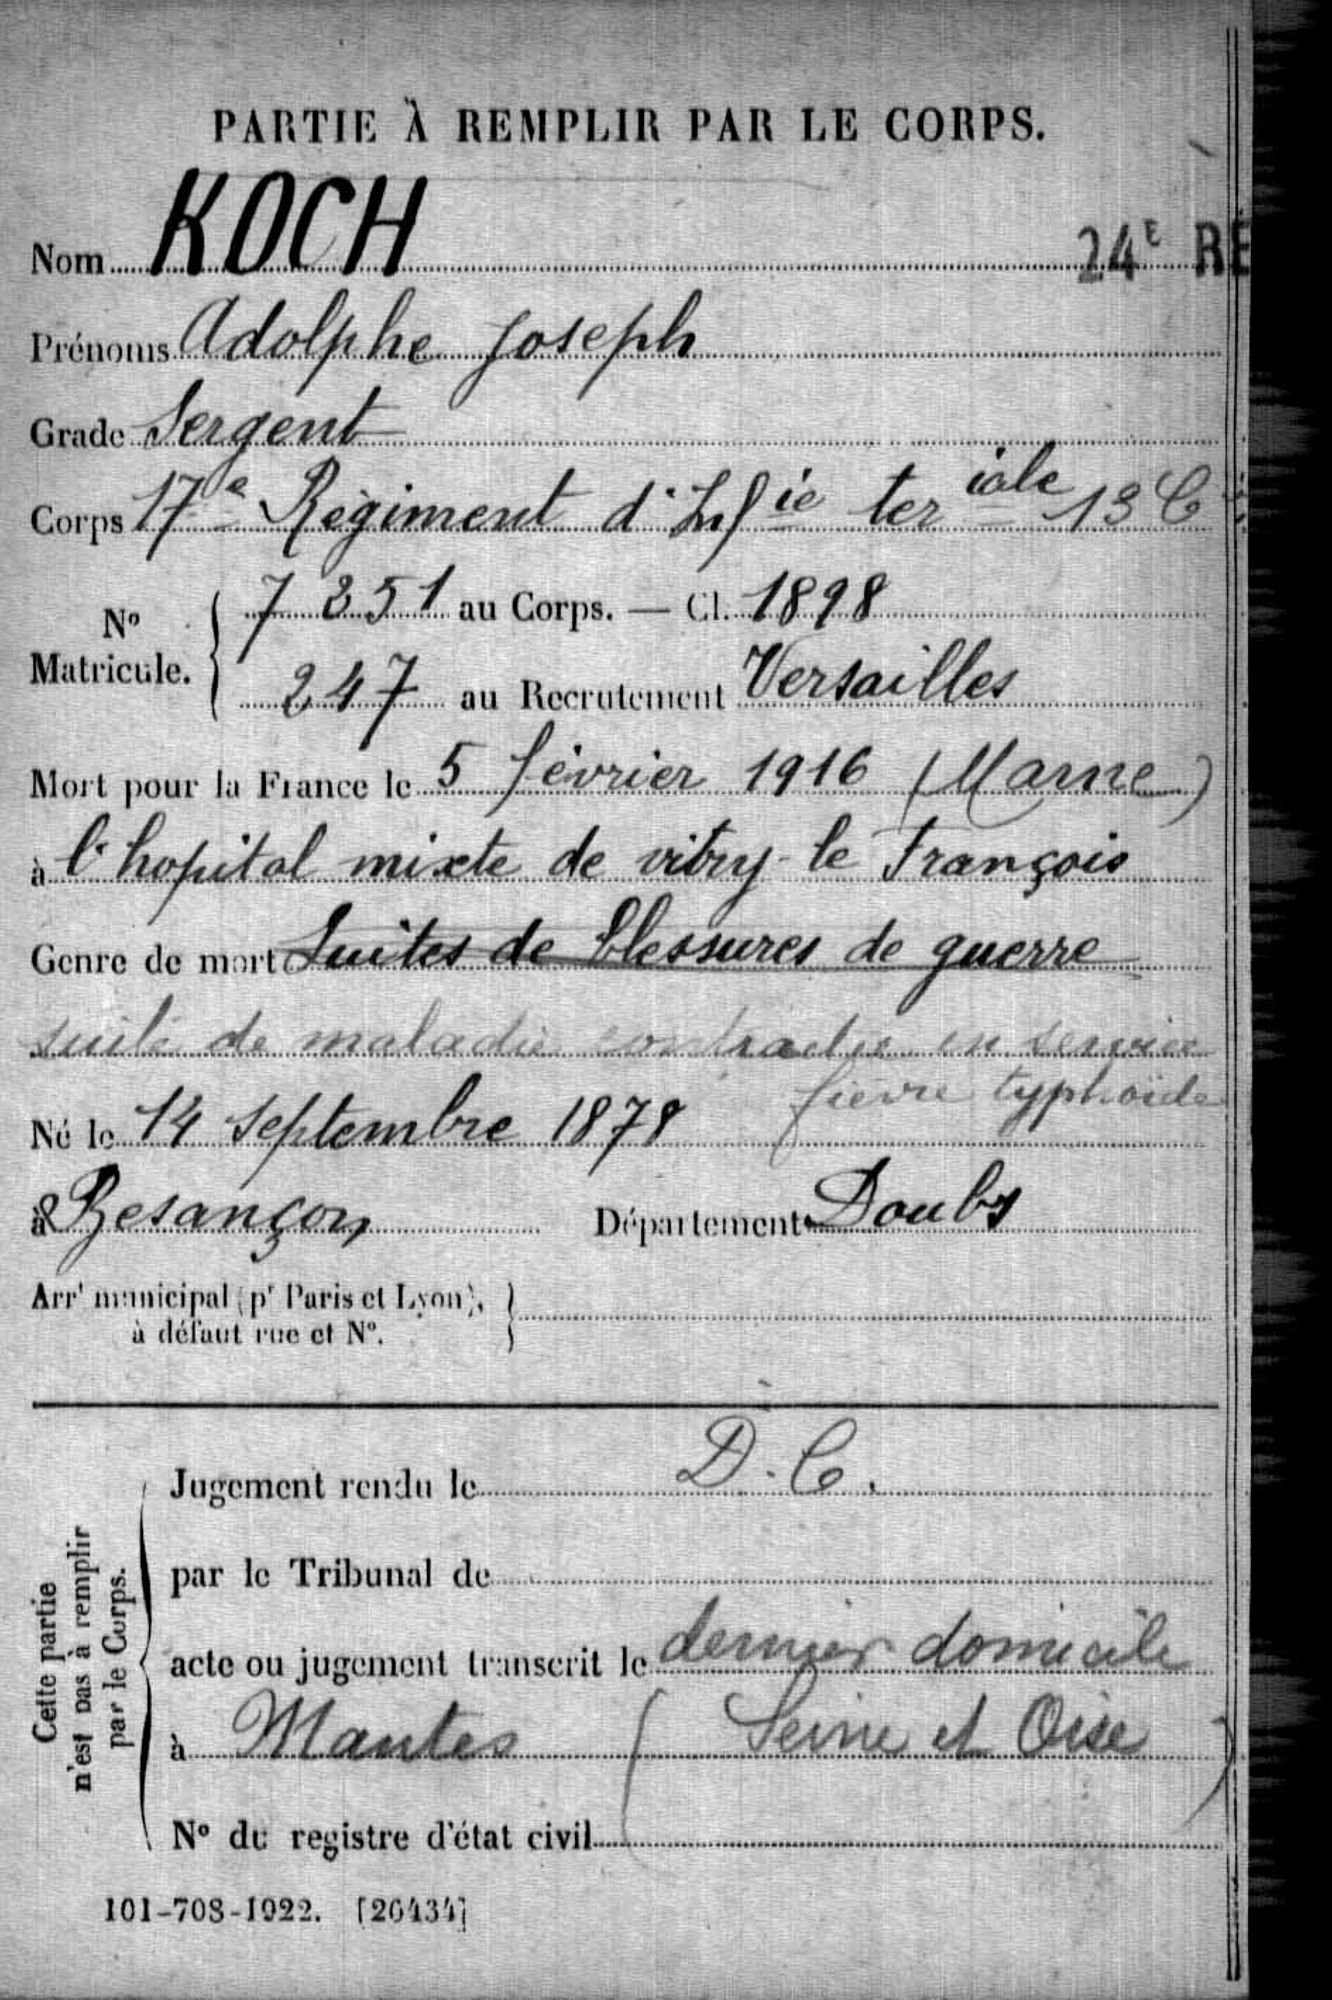 PARTIE À REMPLIR PAR LE CORPS.
Nom KOCH
24E RÉ
Prénoms Adolphe Joseph
Grade Sergent
Corps 17e Régiment d'Infie ter iale 13 C
No Matricule. 7251 au Corps. — Cl. 1898
247 au Recrutement Versailles
Mort pour la France le 5 février 1916 (Marne)
à l'hopital mixte de vitry-le François
Genre de mort Suites de blessures de guerre
suite de maladie contractée en service
fièvre typhoïde
Né le 14 septembre 1878
à Besançon Département Doubs
Arrt municipal (pr Paris et Lyon),
à défaut rue et No.
Cette partie
n'est pas à remplir
par le Corps.
Jugement rendu le D. C.
par le Tribunal de
acte ou jugement transcrit le dernier domicile
à Mantes (Seine et Oise)
No du registre d'état civil
101-708-1922. [26434]